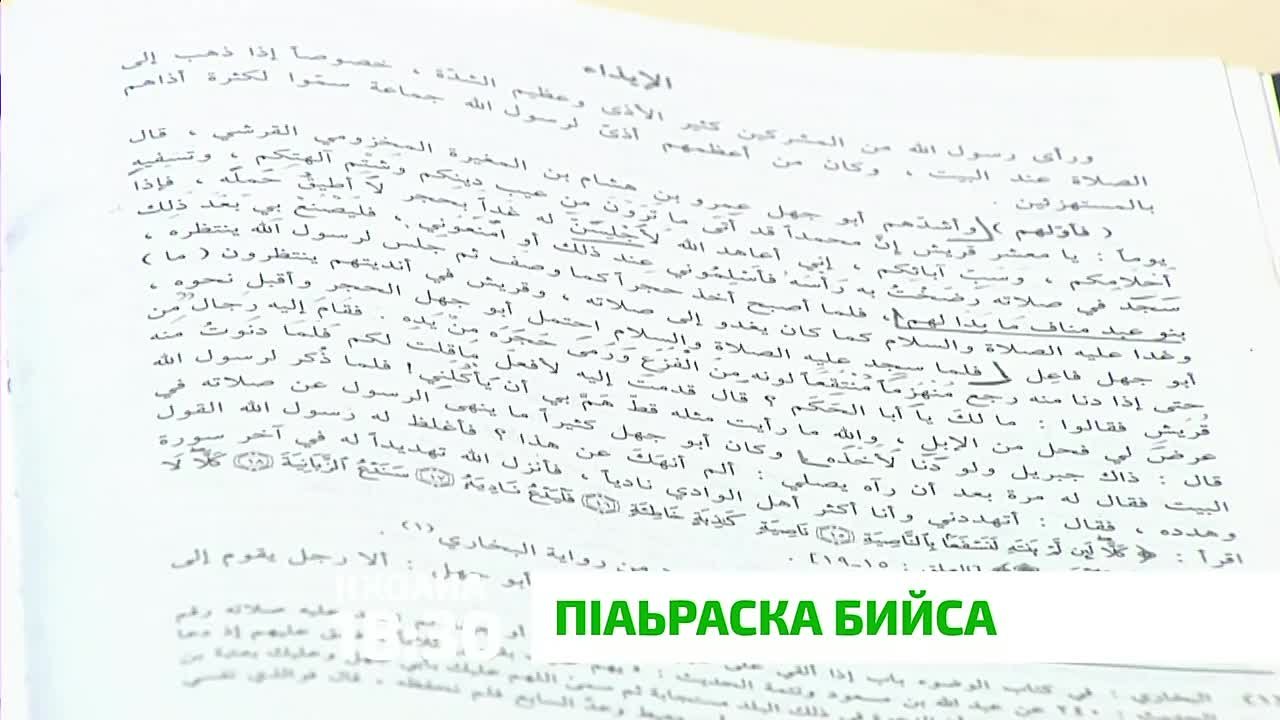 الإيذاء
ورأى رسول الله من المشركين كثير الأذى وعظيم الشدّة ، خصوصاً إذا ذهب إلى
الصلاة عند البيت ، وكان من أعظمهم أذىً لرسول الله جماعة سمّوا لكثرة أذاهم
بالمستهزئين .
( فأوّلهم ) وأشدّهم أبو جهل عمرو بن هشام بن المغيرة المخزومي القرشي ، قال
يوماً : يا معشر قريش إنّ محمداً قد أتى ما ترون من عيب دينكم وشتم آلهتكم ، وتسفيه
أحلامكم ، وسب آبائكم ، إني أعاهد الله لأجلسن له غداً بحجر لا أطيق حمله ، فإذا
سجد في صلاته رضخت به رأسه فأسلموني عند ذلك أو امنعوني ، فليصنع بي بعد ذلك
بنو عبد مناف ما بدا لهم ، فلما أصبح أخذ حجراً كما وصف ثم جلس لرسول الله ينتظره ،
وغدا عليه الصلاة والسلام كما كان يغدو إلى صلاته ، وقريش في أنديتهم ينتظرون ( ما )
أبو جهل فاعل فلما سجد عليه الصلاة والسلام احتمل أبو جهل الحجر وأقبل نحوه ،
حتى إذا دنا منه رجع منهزماً منتقعاً لونه من الفزع ورمى حجره من يده . فقام إليه رجال من
قريش فقالوا : ما لك يا أبا الحكم ؟ قال قدمت إليه لأفعل ما قلت لكم فلما دنوت منه
عرض لي فحل من الإبل ، والله ما رأيت مثله قطّ همّ بي أن يأكلني ! فلما ذُكر لرسول الله
قال : ذاك جبريل ولو دنا لأخذه وكان أبو جهل كثيراً ما ينهى الرسول عن صلاته في
البيت فقال له مرة بعد أن رآه يصلي : ألم أنهك عن هذا ؟ فأغلظ له رسول الله القول
وهدده ، فقال : أتهددني وأنا أكثر أهل الوادي نادياً ، فأنزل الله تهديداً له في آخر سورة
اقرأ : ﴿ كَلَّا لَئِن لَّمْ يَنتَهِ لَنَسْفَعًا بِالنَّاصِيَةِ ﴿١٥﴾ نَاصِيَةٍ كَاذِبَةٍ خَاطِئَةٍ ﴿١٦﴾ فَلْيَدْعُ نَادِيَهُ ﴿١٧﴾ سَنَدْعُ الزَّبَانِيَةَ ﴿١٨﴾ كَلَّا لَا
[العلق : ١٥-١٩] .
من رواية البخاري (١) .
أبو جهل : ألا رجل يقوم إلى
18:30
ПӀАЬРАСКА БИЙСА
(١) البخاري : في كتاب الوضوء باب إذا ألقي على